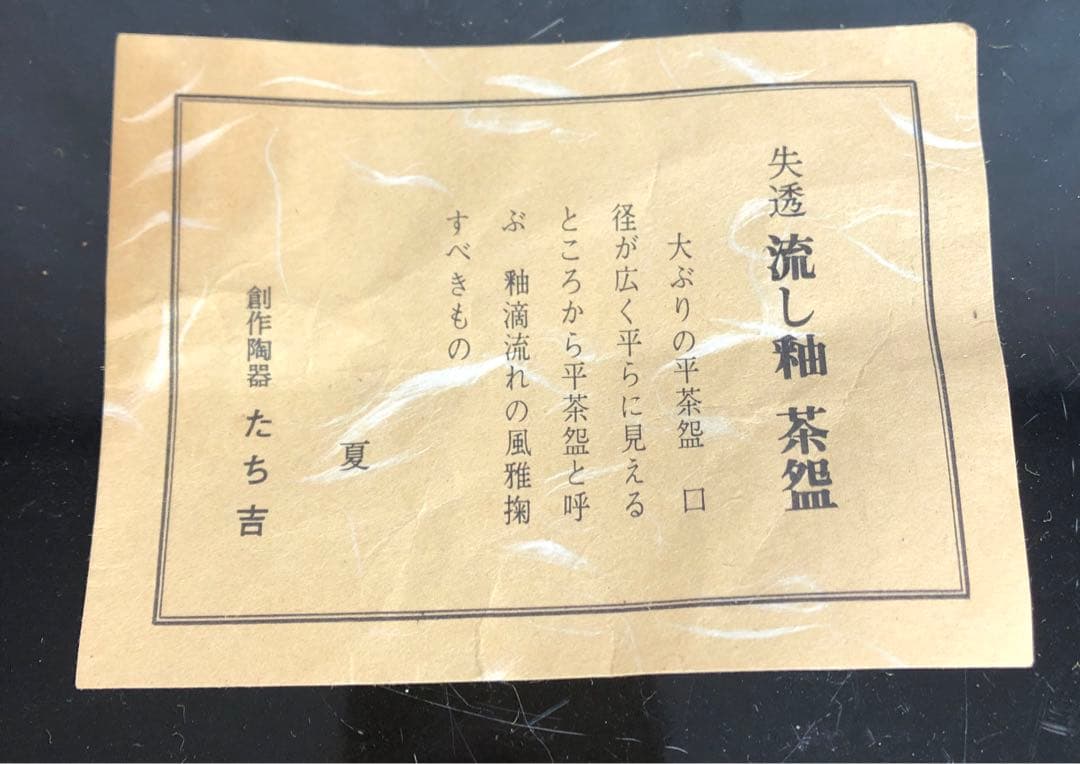 失透 流し釉 茶盌
大ぶりの平茶盌 口
径が広く平らに見える
ところから平茶盌と呼
ぶ 釉滴流れの風雅掬
すべきもの
夏
創作陶器 たち吉